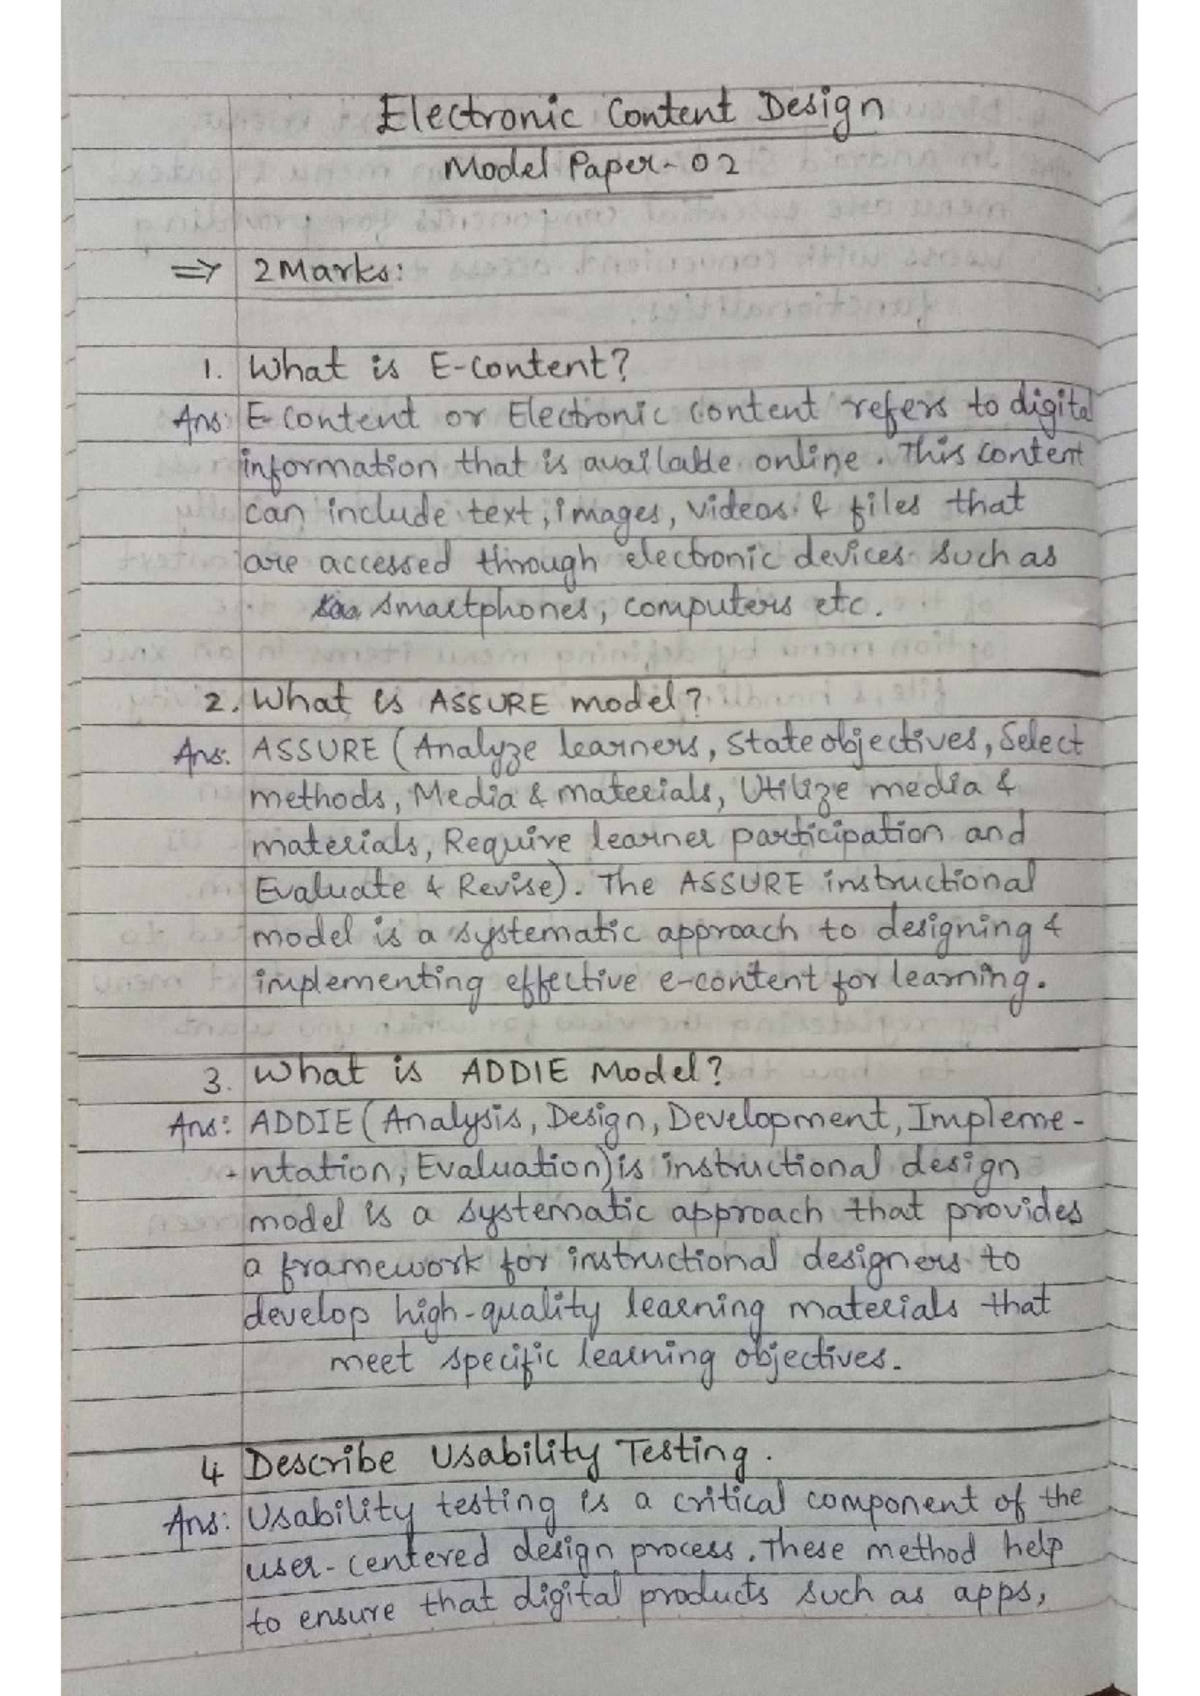 Electronic Content Design
Model Paper-02
=> 2Marks:
1. What is E-Content?
Ans: E-Content or Electronic content refers to digital
information that is available online. This content
can include text, images, videos & files that
are accessed through electronic devices such as
smartphones, computers etc.
2. What is ASSURE model?
Ans: ASSURE (Analyze learners, State objectives, Select
methods, Media & materials, Utilize media &
materials, Require learner participation and
Evaluate & Revise). The ASSURE instructional
model is a systematic approach to designing &
implementing effective e-content for learning.
3. What is ADDIE Model?
Ans: ADDIE (Analysis, Design, Development, Impleme-
-ntation, Evaluation) is instructional design
model is a systematic approach that provides
a framework for instructional designers to
develop high-quality learning materials that
meet specific learning objectives.
4 Describe Usability Testing.
Ans: Usability testing is a critical component of the
user-centered design process. These method help
to ensure that digital products such as apps,